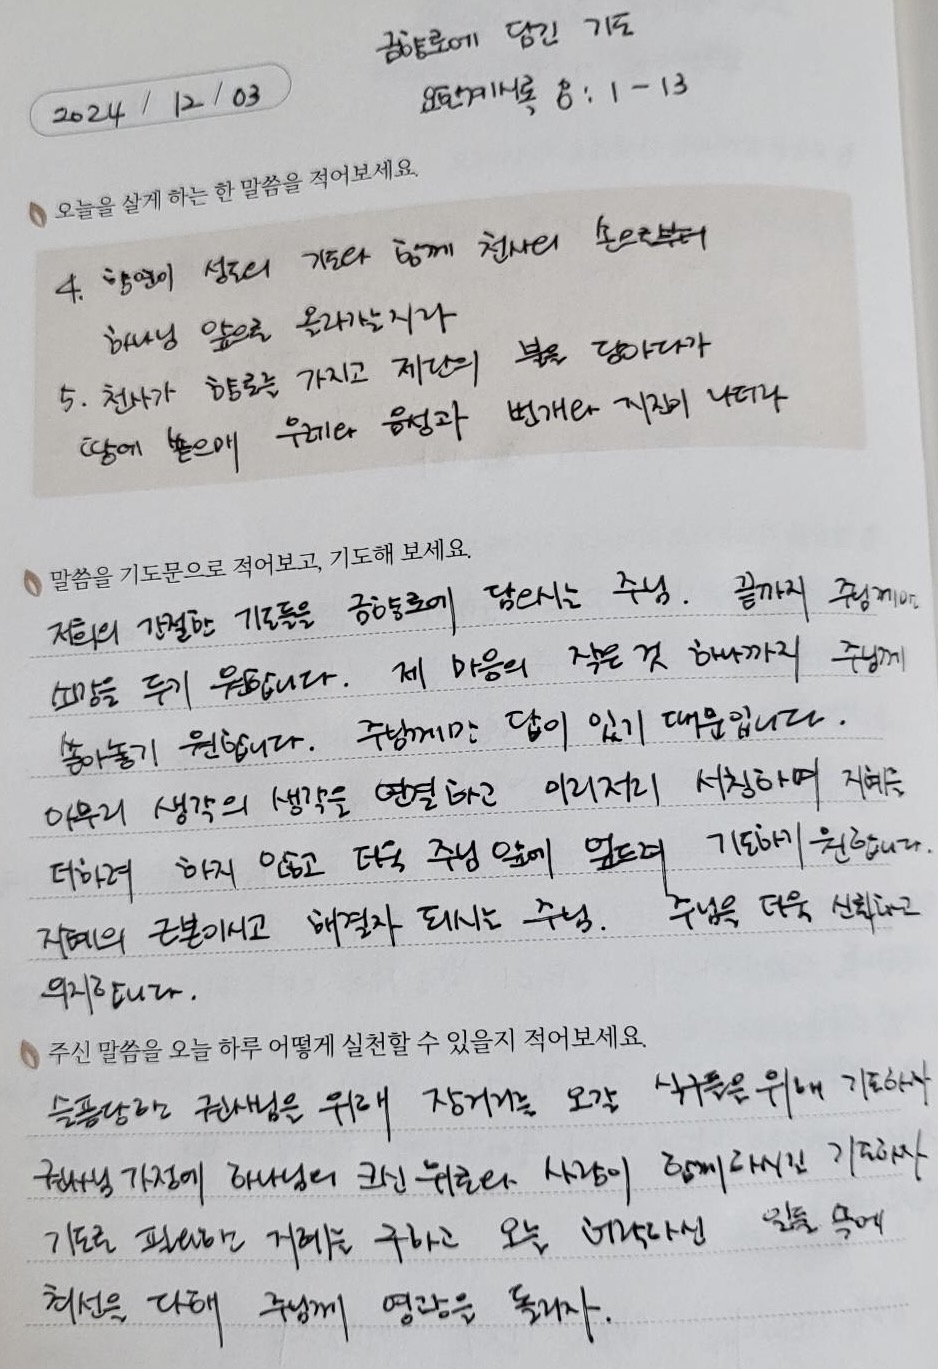 금향로에 담긴 기도
2024 / 12 / 03
요한계시록 8 : 1 - 13
오늘을 살게 하는 한 말씀을 적어보세요.
4. 향연이 성도의 기도와 함께 천사의 손으로부터
하나님 앞으로 올라가는지라
5. 천사가 향로를 가지고 제단의 불을 담아다가
땅에 쏟으매 우레와 음성과 번개와 지진이 나더라
말씀을 기도문으로 적어보고, 기도해 보세요.
저희의 간절한 기도들을 금향로에 담으시는 주님. 끝까지 주님께만
소망을 두기 원합니다. 제 마음의 작은 것 하나까지 주님께
쏟아놓기 원합니다. 주님께만 답이 있기 때문입니다.
아무리 생각의 생각을 연결하고 이리저리 서칭하며 지혜를
더하려 하지 않고 더욱 주님 앞에 엎드려 기도하기 원합니다.
지혜의 근본이시고 해결자 되시는 주님. 주님을 더욱 신뢰하고
의지합니다.
주신 말씀을 오늘 하루 어떻게 실천할 수 있을지 적어보세요.
슬픔당한 권사님을 위해 장거리를 오갈 식구들을 위해 기도하자
권사님 가정에 하나님의 크신 위로와 사랑이 함께하시길 기도하자
기도로 필요한 지혜를 구하고 오늘 허락하신 일들 속에
최선을 다해 주님께 영광을 돌리자.